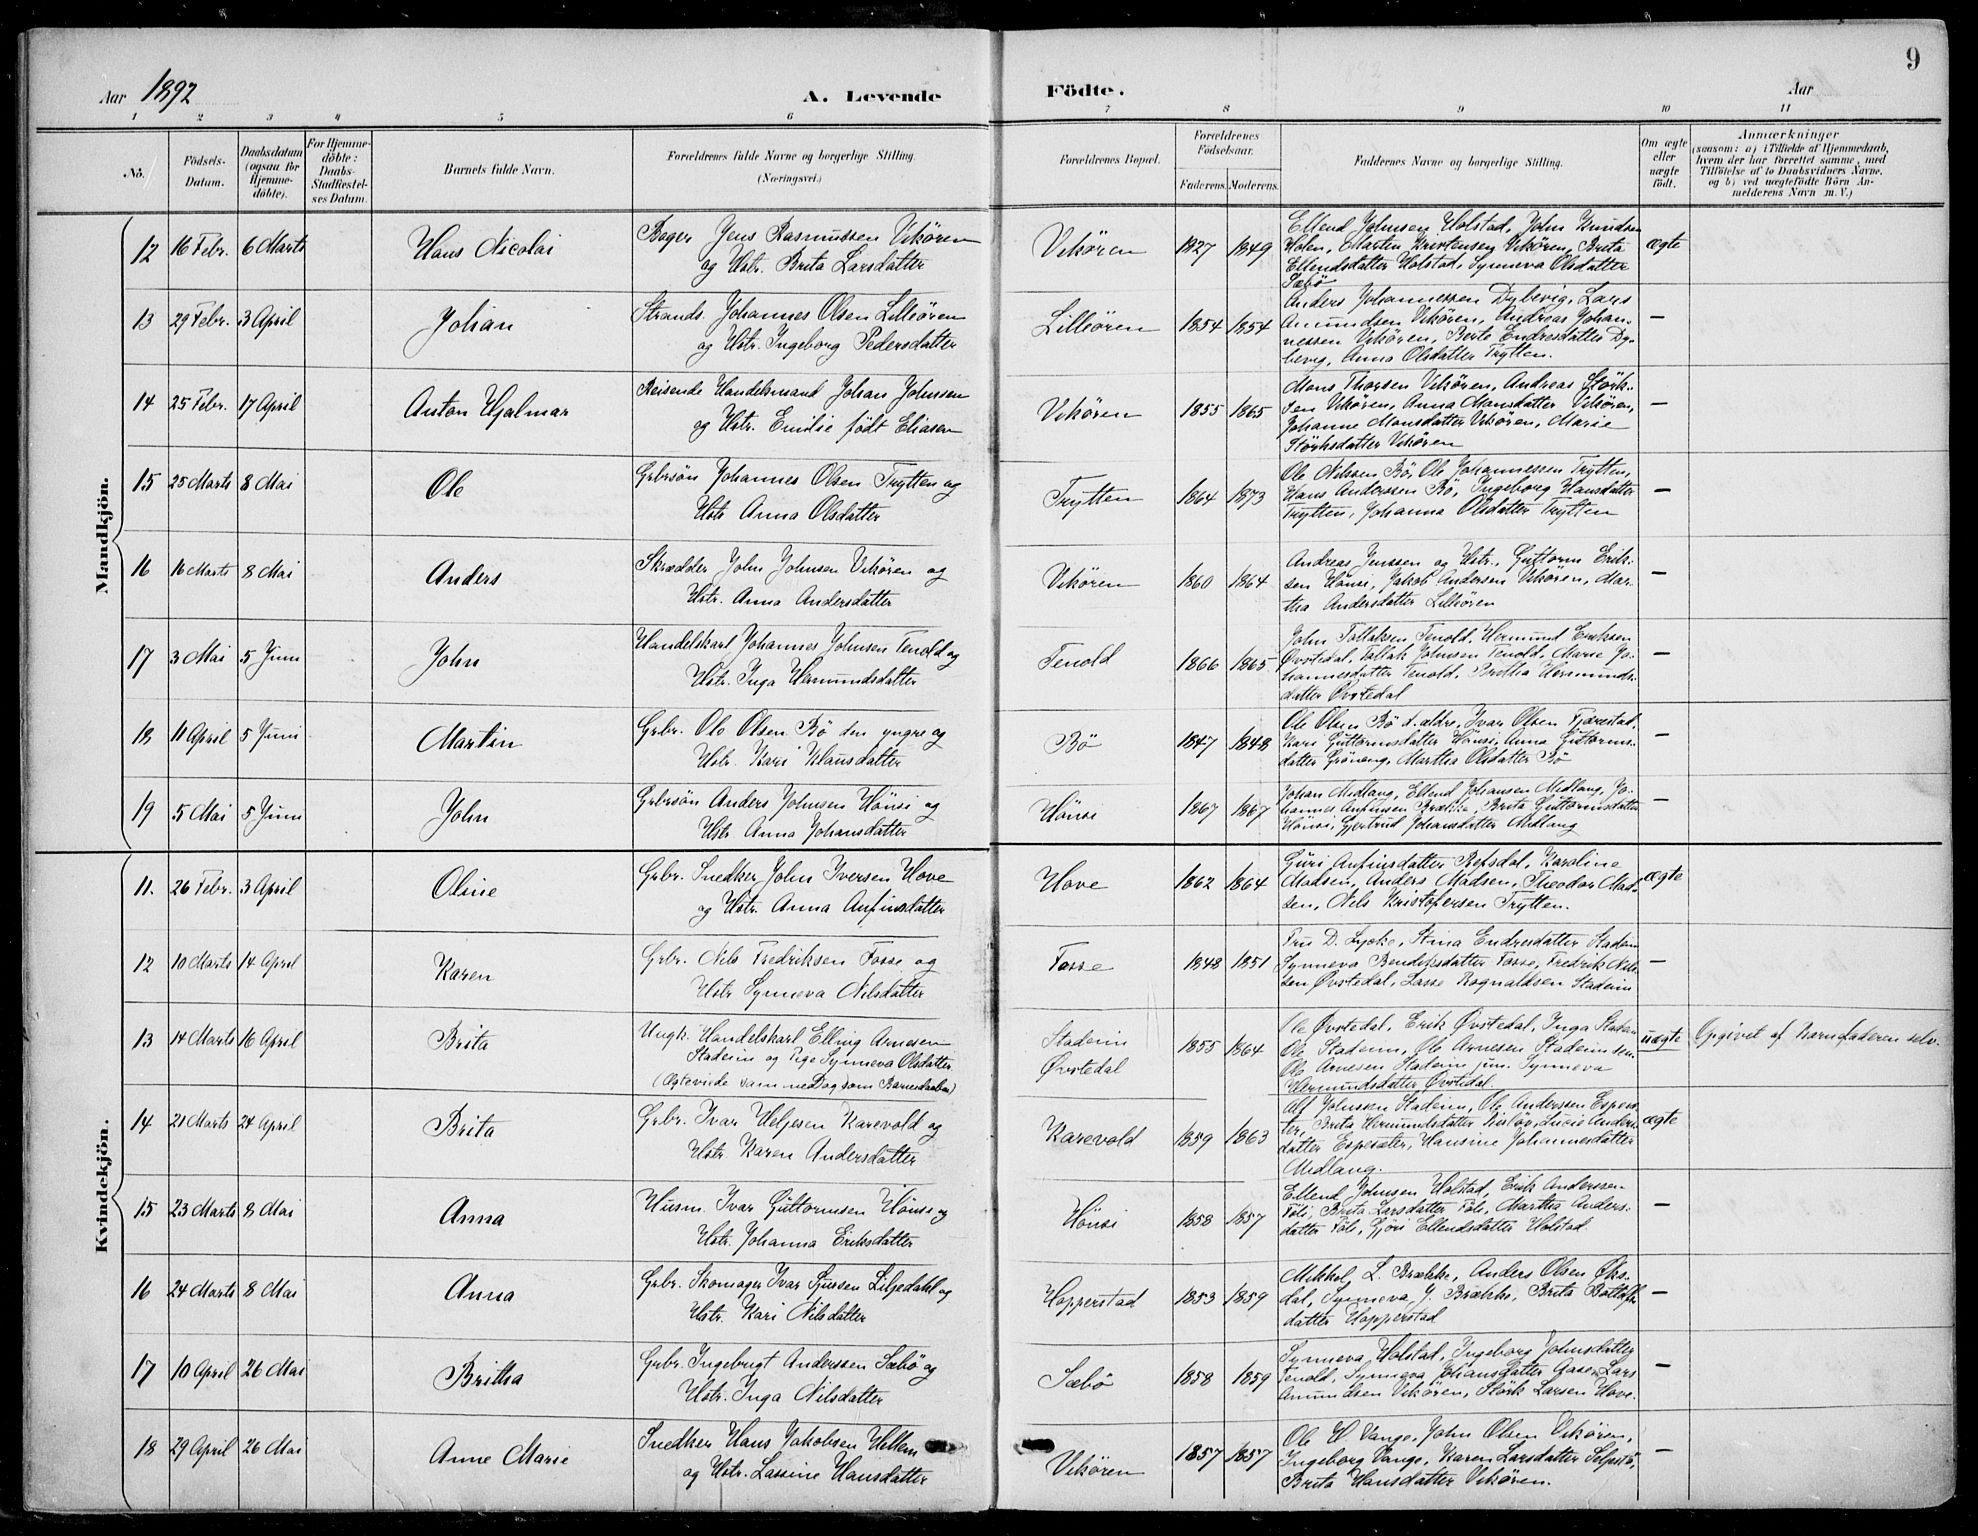 9
Aar 1892
A. Levende Födte.
Aar
1 2 3 4 5 6 7 8 9 10 11
No.
Födsels-Datum.
Daabsdatum (ogsaa for Hjemmedöbte).
For Hjemmedöbte: Daabs-Stadfæstelses Datum.
Barnets fulde Navn.
Forældrenes fulde Navne og borgerlige Stilling. (Næringsvei.)
Forældrenes Bopæl.
Forældrenes Födselsaar.
Faderens. Moderens.
Faddernes Navne og borgerlige Stilling.
Om ægte eller uægte födt.
Anmærkninger
(saasom: a) i Tilfælde af Hjemmedaab,
hvem der har forrettet samme, med
Tilföielse af to Daabsvidners Navne.
og b) ved uægtefödte Börn An-
melderens Navn m. V.)
Mandkjön.
12 16 Febr. 6 Marts Hans Nicolai
Bager Jens Rasmussen Vikören
og Hstr. Brita Larsdatter
Vikören 1827 1849
Ellend Johnsen Holstad, John Knudsen
Holen, Martin Kristensen Vikören, Brita
Ellendsdatter Holstad, Synneva Olsdatter
Sæbö
ægte
13 29 Febr. 3 April Johan
Strands. Johannes Olsen Lilleören
og Hstr. Ingeborg Pedersdatter
Lilleören 1854 1854
Anders Johannessen Dybevig, Lars
Amundsen Vikören, Andreas Johan-
nessen Vikören, Berte Endresdatter Dy-
bevig, Anna Olsdatter Trytten.
—
14 25 Febr. 17 April Anton Hjalmar
Reisende Handelsmand Johan Johnsen
og Hstr. Emilie født Eliasen
Vikören 1855 1865
Mons Thorsen Vikören, Andreas Störk-
sen Vikören, Anna Monsdatter Vikören,
Johanne Monsdatter Vikören, Marie
Störksdatter Vikören
—
15 25 Marts 8 Mai Ole
Grbrsön Johannes Olsen Trytten og
Hstr Anna Olsdatter
Trytten 1864 1873
Ole Nilsen Bö, Ole Johannessen Trytten,
Hans Anderssen Bö, Ingeborg Hansdatter
Trytten, Johanna Olsdatter Trytten
—
16 16 Marts 8 Mai Anders
Skrædder John Johnsen Vikören og
Hstr. Anna Andersdatter
Vikören 1860 1864
Andreas Jenssen og Hstr., Guttorm Erik-
sen Hönsi, Jakob Andersen Vikören, Mar-
tha Andersdatter Lilleören
—
17 3 Mai 5 Juni John
Handelskarl Johannes Johnsen Tenold og
Hstr. Inga Hermundsdatter
Tenold 1866 1865
John Tollaksen Tenold, Hermund Eriksen
Øvstedal, Tollak Johnsen Tenold, Marie Jo-
hannesdatter Tenold, Britha Hermunds-
datter Øvstedal
—
18 11 April 5 Juni Martin
Grbr. Ole Olsen Bö den yngre og
Hstr. Kari Klausdatter
Bö 1847 1848
Ole Olsen Bö d. ældre, Ivar Olsen Fjærestad,
Kari Guttormsdatter Hönsi, Anna Guttorms-
datter Gröneng, Martha Olsdatter Bö
—
19 5 Mai 5 Juni John
Grbrsön Anders Johnsen Hönsi og
Hstr. Anna Johansdatter
Hönsi 1867 1867
Johan Midlang, Ellend Johansen Midlang, Jo-
hannes Anfinsen Brække, Brita Guttormsdatter
Hönsi, Gjertrud Johansdatter Midlang
—
Kvindekjön.
11. 26 Febr. 3 April Oline
Grbr. Snedker John Iversen Hove
og Hstr. Anna Anfinsdatter
Hove 1862 1864
Guri Anfinsdatter Refsdal, Karoline
Madsen, Anders Madsen, Theodor Mad-
sen, Nils Kristofersen Trytten.
ægte
12 10 Marts 14 April Karen
Grbr. Nils Fredriksen Fosse og
Hstr Synneva Nilsdatter
Fosse 1848 1851
Fru D. Lycke, Stina Endresdatter Stadeim
Synneva Bendiksdatter Fosse, Fredrik Nil-
sen Øvstedal, Lasse Rognaldsen Stadeim
—
13 14 Marts 16 April Brita
Ungk. Handelskarl Elling Arnesen
Stadeim og Pige Synneva Olsdatter
(Ægteviede samme Dag som Barnedaaben)
Stadeim
Øvstedal
1855 1864
Ole Øvstedal, Erik Øvstedal, Inga Stadeim
Ole Stadeim, Ole Arnesen Stadeim sen.
Ole Arnesen Stadeim jun. Synneva
Hermundsdatter Øvstedal.
uægte
Opgivet af Barnefaderen selv.
14 21 Marts 24 April Brita
Grbr. Ivar Heljesen Karevold og
Hstr. Karen Andersdatter
Karevold 1859 1863
Alf Johnsen Stadeim, Ole Anderssen Espesæ-
ter, Brita Hermundsdatter, Lucie Anders-
datter Espesæter, Hansine Johannesdatter
Midlang.
ægte
15 23 Marts 8 Mai Anna
Husm. Ivar Guttormsen Hönsi og
Hstr. Johanna Eriksdatter
Hönsi 1858 1857
Ellend Johnsen Holstad, Erik Anderssen
Föli, Brita Larsdatter Föli, Martha Anders-
datter Föli, Gjöri Ellendsdatter Holstad.
—
16 24 Marts 8 Mai Anna
Grbr. Skomager Ivar Sjursen Liljedahl og
Hstr. Kari Nilsdatter
Hopperstad 1853 1859
Mikkel L. Brække, Anders Olsen Øks-
dal, Synneva J. Brække, Brita Bottolfs-
datter Hopperstad
—
17 10 April 26 Mai Britha
Grbr. Ingebrigt Anderssen Sæbö og
Hstr. Inga Nilsdatter
Sæbö 1858 1859
Synneva Holstad, Ingeborg Johnsdatter
Tenold, Synneva Johansdatter Aase, Lars
Amundsen Vikören, Störk Larsen Hove.
—
18 29 April 26 Mai Anne Marie
Snedker Hans Jakobsen Hellem
og Hstr. Lassine Hansdatter
Vikören 1857 1857
Ole H. Vange, John Olsen Vikören,
Ingeborg Vange, Karen Larsdatter
Brita Hansdatter Vikören.
—